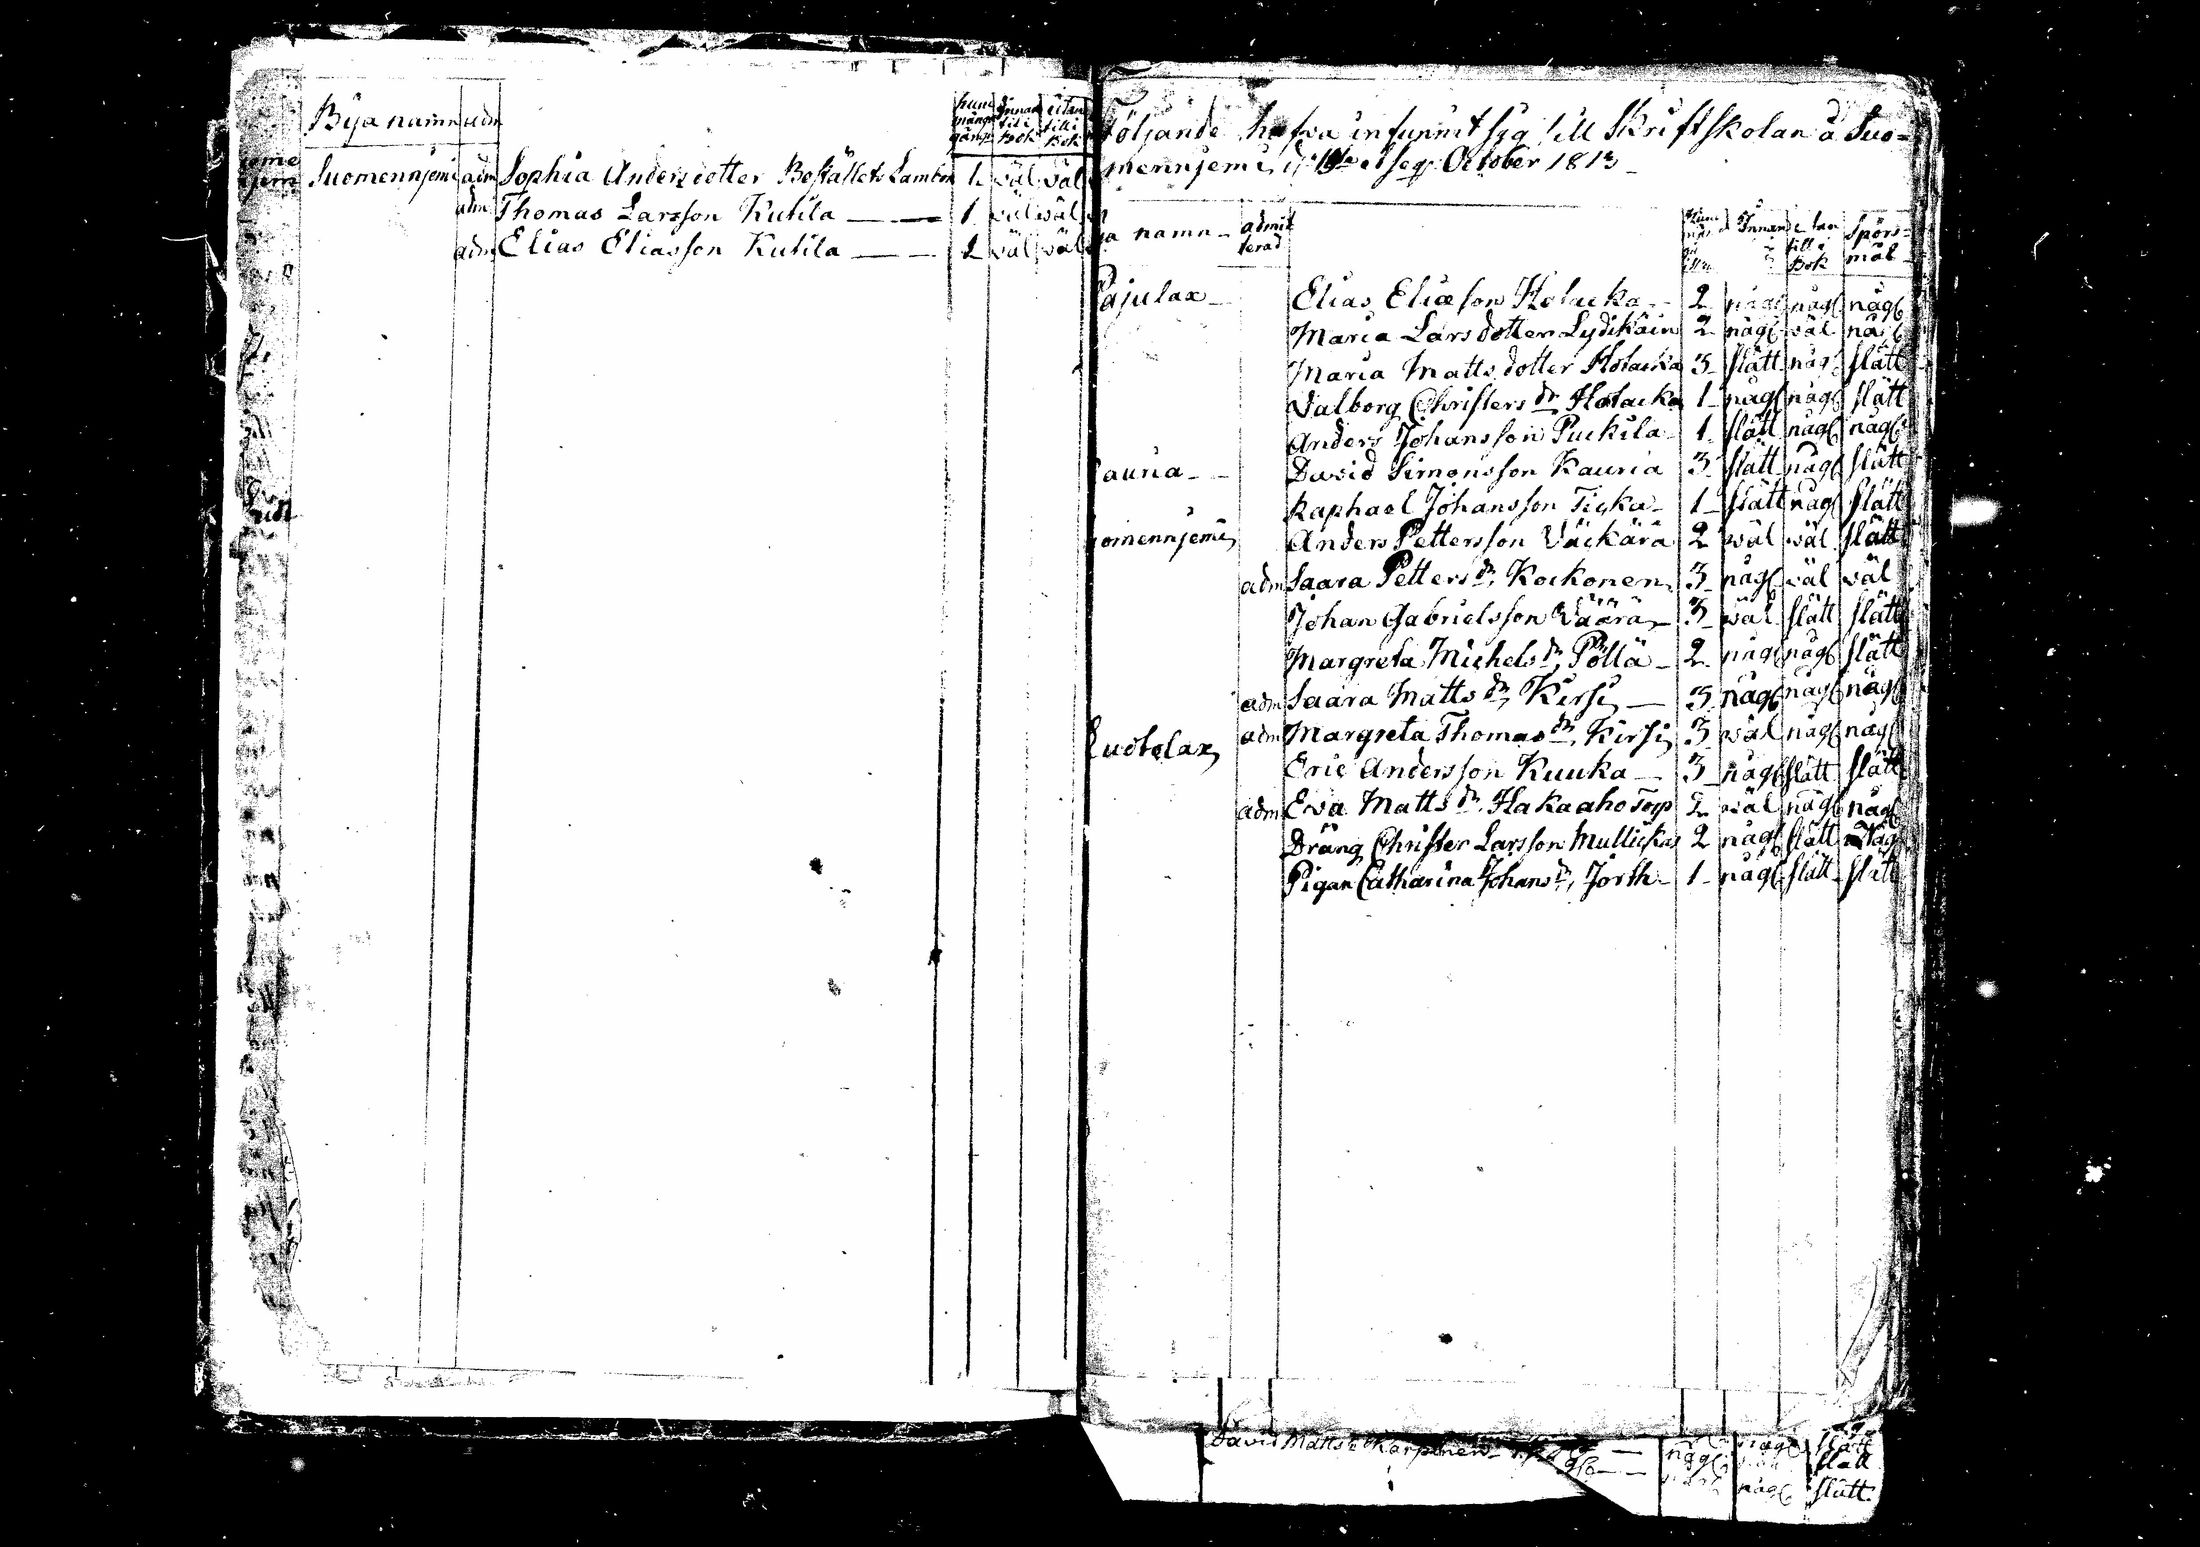 Bya namn adm huru mången gång Innan till i Bok utan till i Bok
Suomennjemi adm Sophia Andersdotter Boställets Lamben 1 väl väl
adm Thomas Larsson Kukila — — 1 väl väl
adm Elias Eliasson Kukila — — 2 väl väl
Följande hafva infunnit sig till Skriftskolan å Suo=
mennjemi d. et seq. October 1813
namn admit terad Innan utan till i Bok Spörs= mål
Pajulax Elias Eliæson Holacka 2 någl någl någl
Maria Larsdotter Lydikäin 2 någl väl någl
Maria Mattsdotter Holacka 3 slätt någl slätt
Valborg Christersdr Holacka 1 någl någl slätt
Anders Johansson Puckila 1 slätt någl någl
Kauria David Simonsson Kauria 3 slätt någl slätt
Raphael Johansson Ticka 1 slätt någl slätt
uomennjemi Anders Pettersson Väckärä 2 väl väl slätt
adm Saara Pettersdr Kockonen 3 någl väl väl
Johan Gabrielsson Väärä 3 väl slätt slätt
Margreta Michelsdr Pöllä 2 någl någl slätt
adm Saara Mattsdr Kirsi — 3 någl någl någl
Luotolax adm Margreta Thomasdr Kirsi 3 väl någl någl
Eric Andersson Kuuka — 3 någl slätt slätt
adm Eva Mattsdr Hakaaho Torp 2 väl någl någl
Dräng Christer Larsson Mullickas 2 någl slätt någl
Pigan Catharina Johansdr Jorth 1 någl slätt slätt
David Matts Karpinen — någl någl slätt
slätt
någl slätt